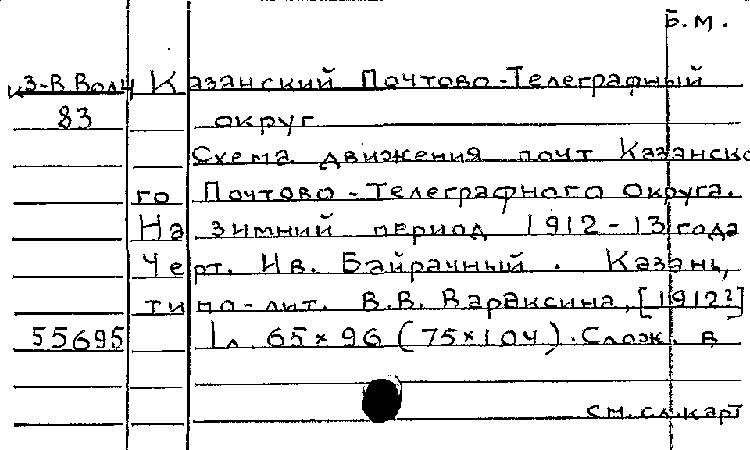 Б.М.
К 3-В Волч Казанский Почтово-Телеграфный
83 округ
Схема движения почт Казанско
го Почтово-Телеграфного округа.
На зимний период 1912-13 года
Черт. Ив. Байрачный. Казань,
типо-лит. В.В. Вараксина, [1912?]
55695 1 л. 65×96 (75×104). Слож. в
см.сл.карт